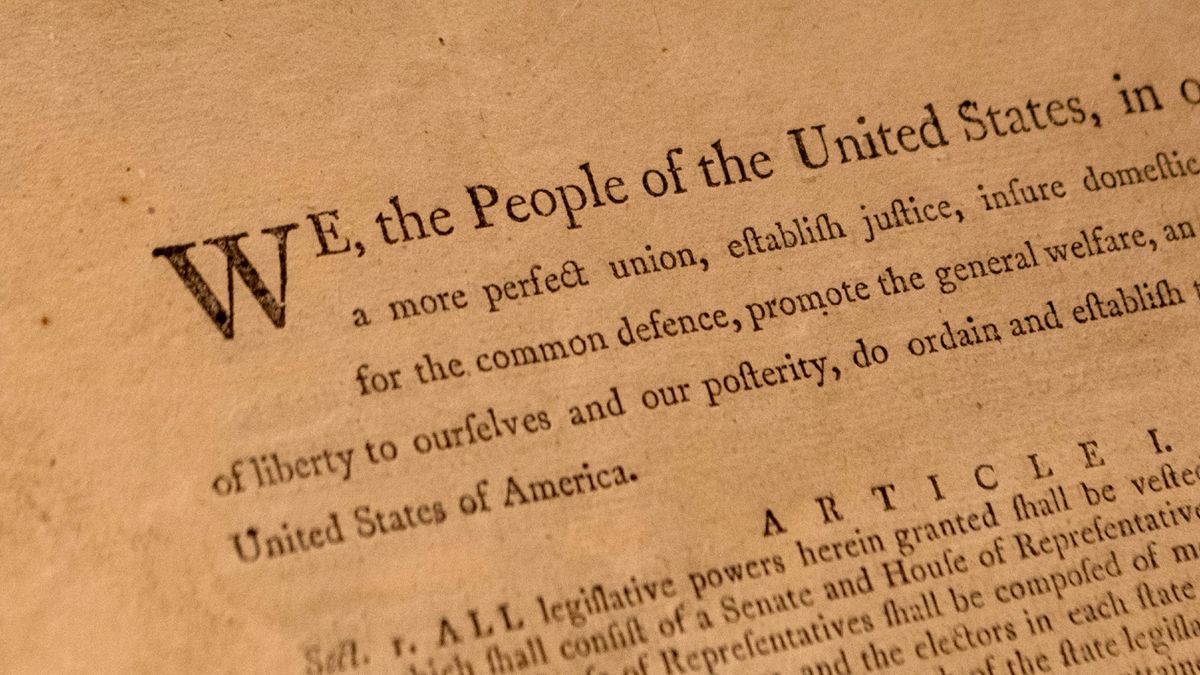 WE, the People of the United States, in o
a more perfect union, eſtabliſh juſtice, inſure domeſtic
for the common defence, promote the general welfare, an
of liberty to ourſelves and our poſterity, do ordain and eſtabliſh t
United States of America.
A R T I C L E I.
Sect. 1. ALL legiſlative powers herein granted ſhall be veſted
hich ſhall conſiſt of a Senate and Houſe of Repreſentative
of Repreſentatives ſhall be compoſed of m
and the electors in each ſtate
of the ſtate legiſla